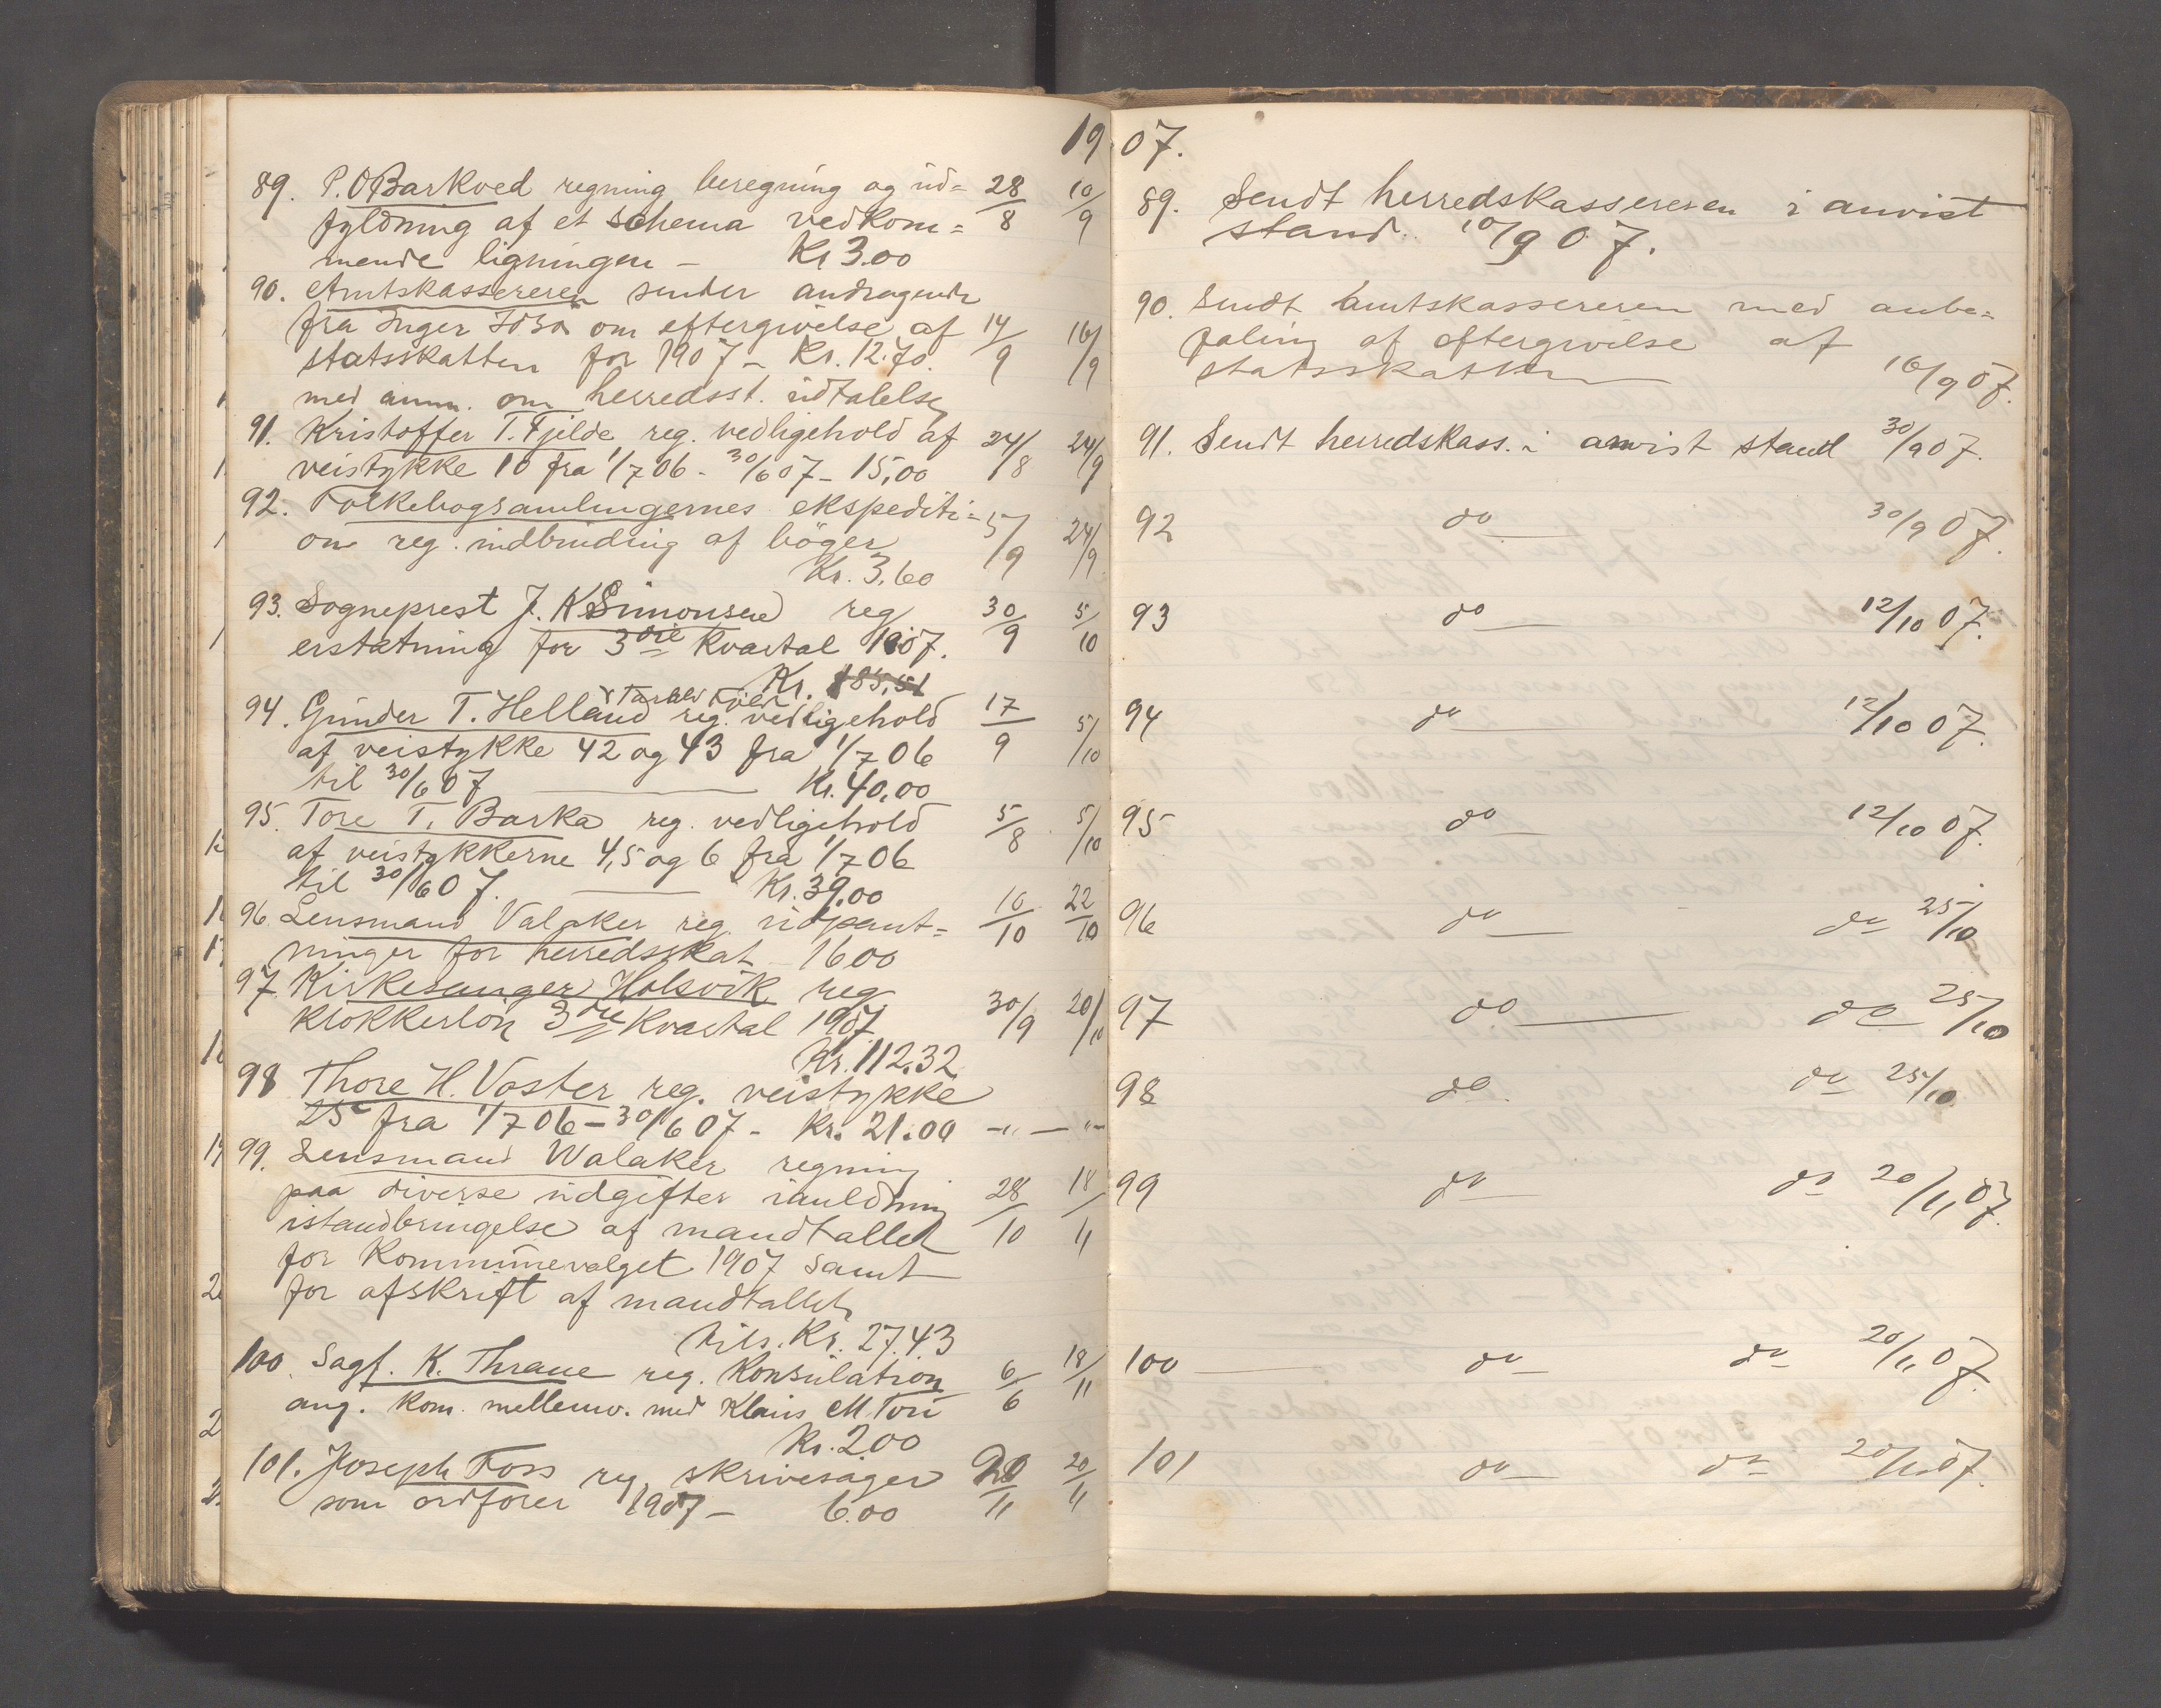 1907.
89. P. O Barkved regning beregning og ud= 28/8 10/9
fyldning af et schema vedkom=
mende ligningen - Kr 3.00
90. Amtskassereren sender andragende
fra Inger om eftergivelse af 14/9 16/9
statsskatten for 1907 - Kr. 12.70.
med anm. om herredsst. udtalelse
91. Kristoffer T. Fjelde reg. vedligehold af 24/8 24/9
veistykke 10 fra 1/7 06 - 30/6 07 - 15,00
92. Folkebogsamlingernes ekspediti= 5/9 24/9
on reg. indbinding af bøger
Kr. 3,60
93. Sogneprest J. K Simonsen reg 30/9 5/10
erstatning for 3die Kvartal 1907.
Kr. 185,51
94. Gunder T. Helland reg. vedligehold 17/9 5/10
af veistykke 42 og 43 fra 1/7 06
til 30/6 07 — Kr. 40,00
95. Tore T. Barka reg. vedligehold 5/8 5/10
af veistykkerne 4,5 og 6 fra 1/7 06
til 30/6 07. — Kr. 39.00
96. Lensmand Valaker reg. udpant= 16/10 22/10
ninger for herredsskat - 16 00
97. Kirkesanger Holsvik reg
klokkerløn 3die Kvartal 1907 30/9 20/10
Kr. 112,32
98 Thore H. Vaster reg. veistykke
25 fra 1/7 06 - 30/6 07 - Kr. 21.00 -"- — "-
99. Lensmand Walaker regning
paa diverse udgifter 28/10 18/11
istandbringelse af mandtallet
for Kommunevalget 1907 samt
for afskrift af mandtallet
tils. Kr. 27.43
100. Sagf. K. Thraue reg. Konsulation 6/6 18/11
ang. kom. mellemv. med Klaus M Tou
Kr. 200
101. Joseph Foss reg. skrivesager 20/11 20/11
som ordfører 1907 - 6.00
89. Sendt herredskassereren i anvist
stand. 10/9 07.
90. Sendt amtskassereren med anbe=
faling af eftergivelse af
statsskatten — 16/9 07.
91. Sendt herredskass. i anvist stand 30/9 07.
92 do — 30/9 07.
93 do — 12/10 07.
94 do — 12/10 07.
95 do — 12/10 07.
96 do — do 25/10
97 do — do 25/10
98 do do 25/10
99 do — do 20/11 07.
100 — do — do 20/11 07.
101 do — do 20/11 07.